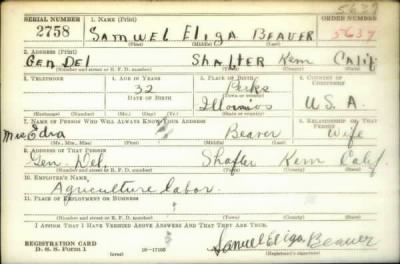 SERIAL NUMBER 1. NAME (Print) ORDER NUMBER
5637
2758 SAMWEL ELIGA BEAVER 5637
(First) (Middle) (Last)
2. ADDRESS (Print)
GEN DEL SHAFTER Kern Calif
(Number and street or R. F. D. number) (Town) (County) (State)
3. TELEPHONE 4. AGE IN YEARS 5. PLACE OF BIRTH 6. COUNTRY OF CITIZENSHIP
32 Parks
DATE OF BIRTH (Town or county)
Illoinios U.S.A.
(Exchange) (Number) (Mo.) (Day) (Yr.) (State or country)
7. NAME OF PERSON WHO WILL ALWAYS KNOW YOUR ADDRESS 8. RELATIONSHIP OF THAT PERSON
Mrs Edra Beaver Wife
(Mr., Mrs., Miss) (First) (Middle) (Last)
9. ADDRESS OF THAT PERSON
Gen. Del. Shafter Kern Calif.
(Number and street or R. F. D. number) (Town) (County) (State)
10. EMPLOYER'S NAME
Agriculture labor.
11. PLACE OF EMPLOYMENT OR BUSINESS
(Number and street or R. F. D. number) (Town) (County) (State)
I AFFIRM THAT I HAVE VERIFIED ABOVE ANSWERS AND THAT THEY ARE TRUE.
REGISTRATION CARD
D. S. S. Form 1 (over) 16—17105 Samuel Eliga Beaver
(Registrant's signature)